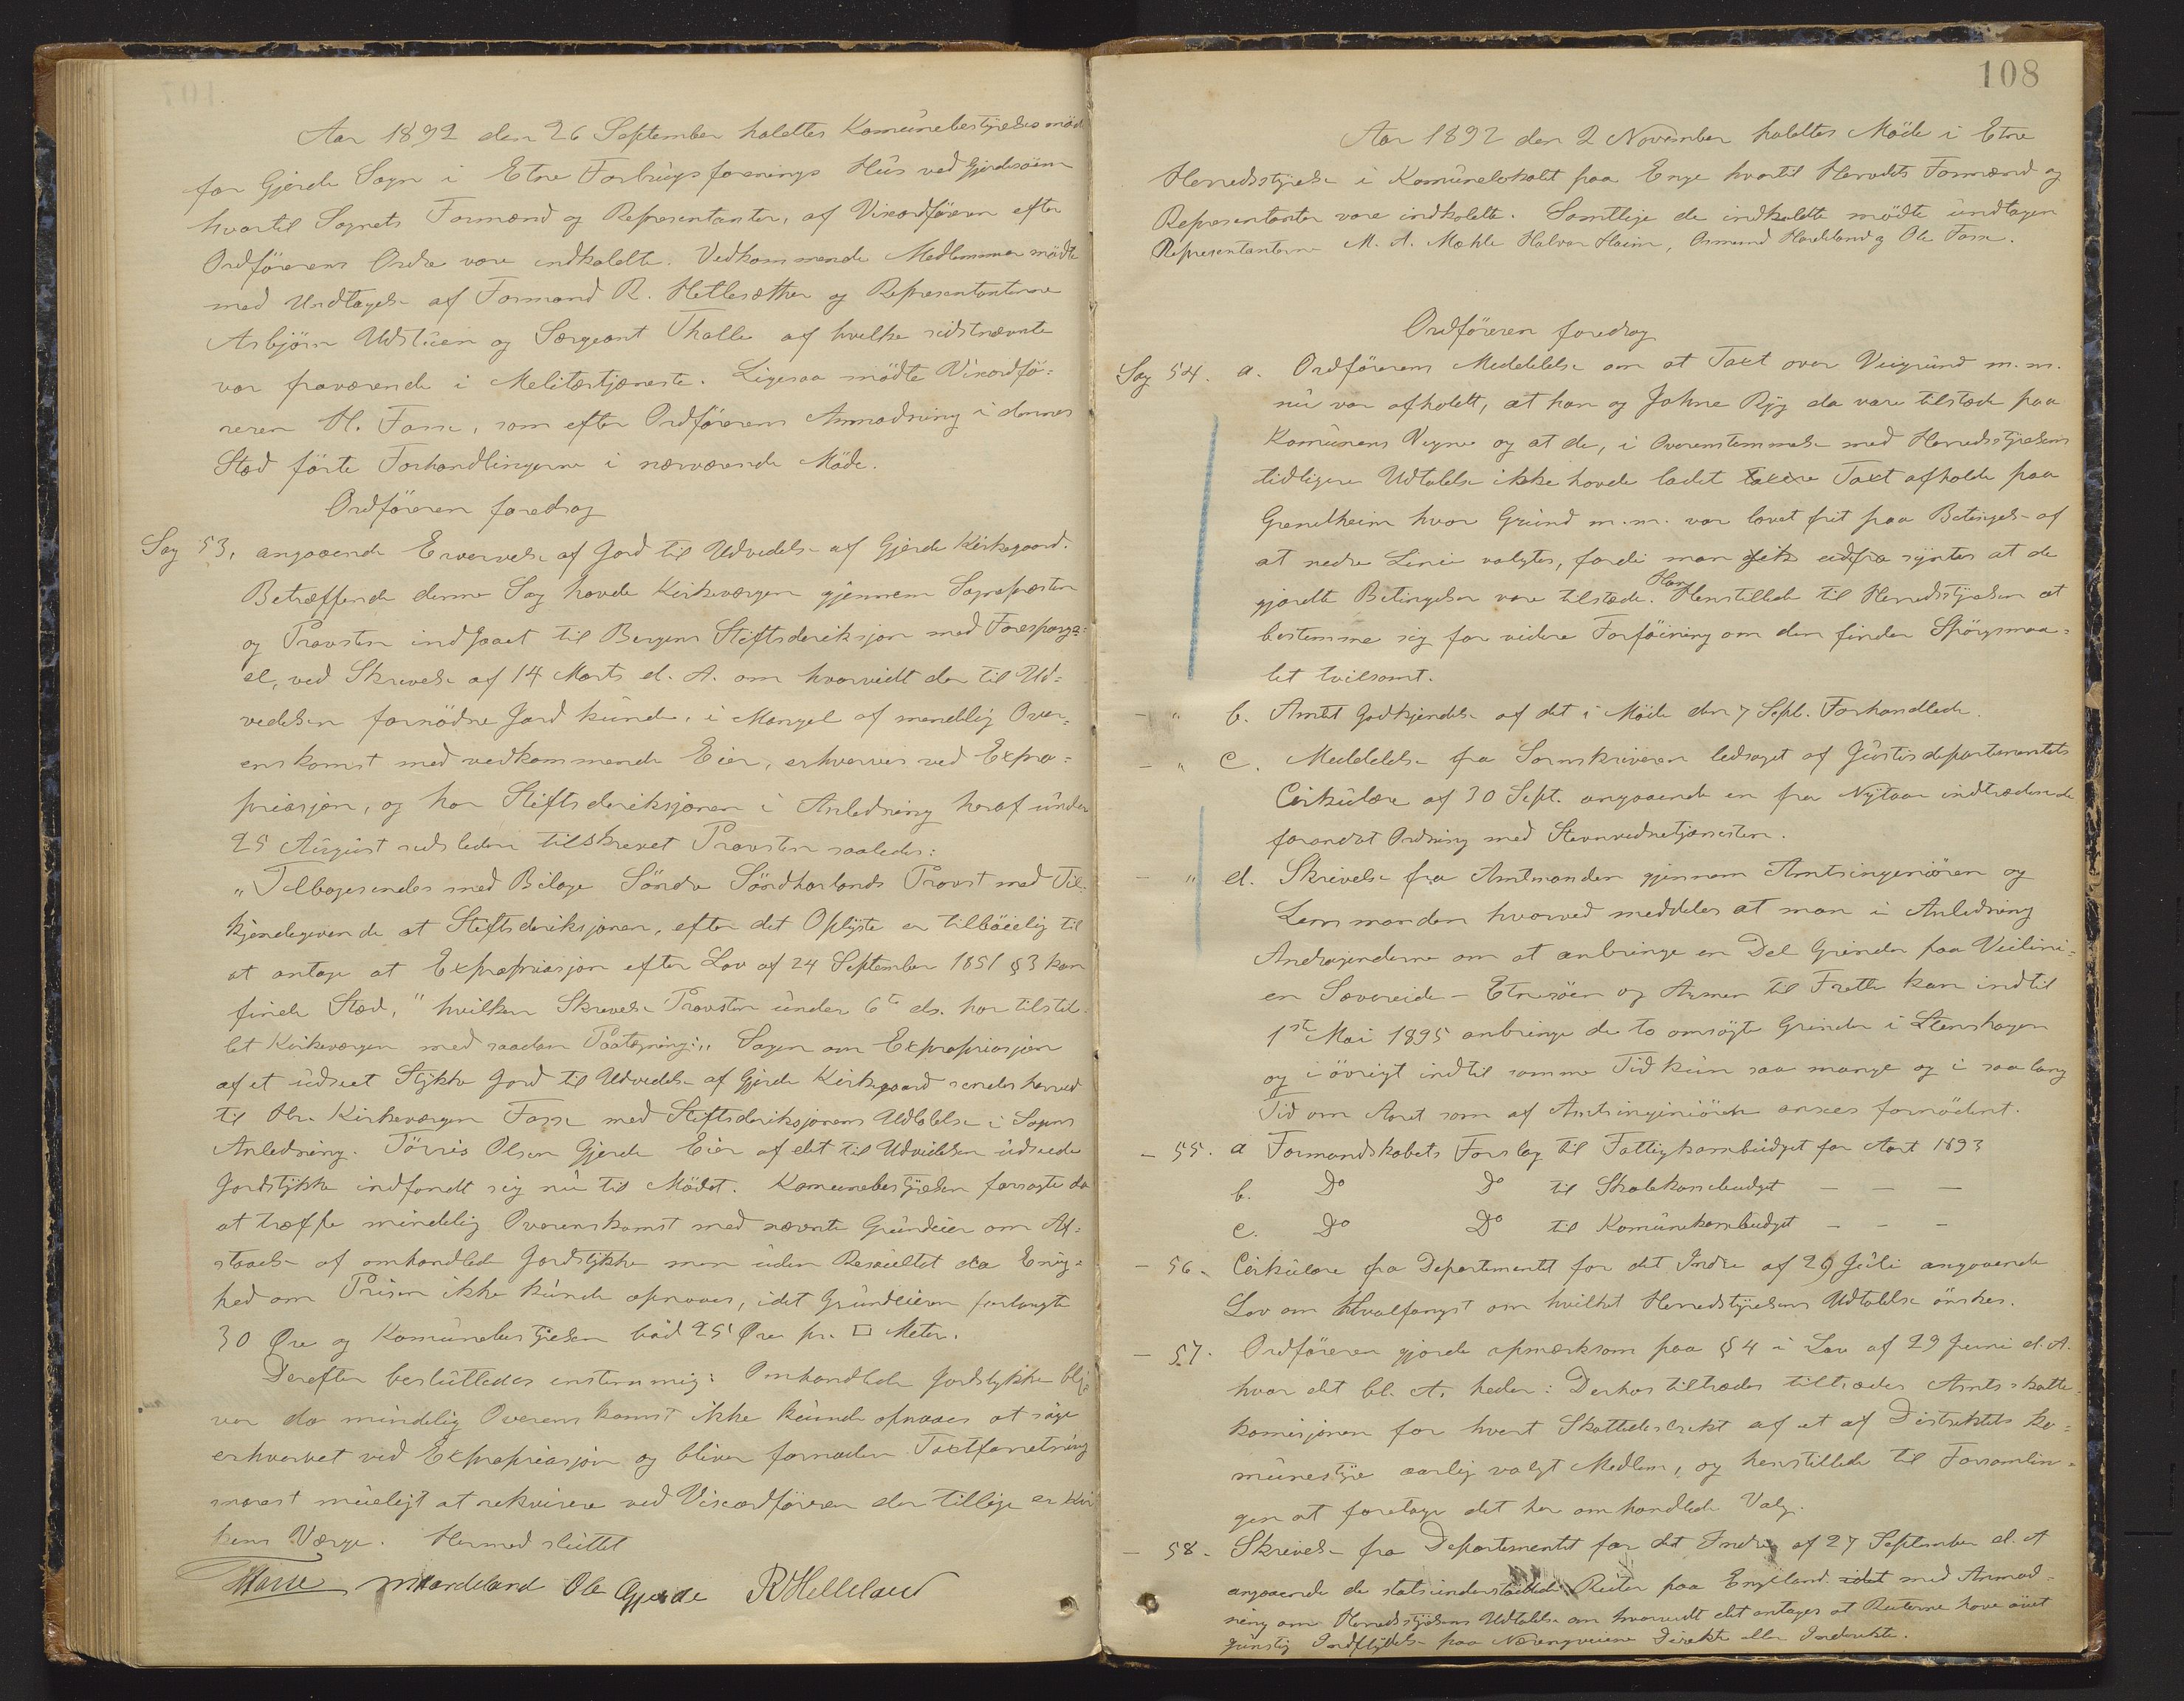 Aar 1892 den 26 September holdtes Komünebestyrelsesmöde
for Gjerde Sogn i Etne Forbrugsforenings Hüs ved Gjerdesöen
hvortil Sognets Formænd og Representanter, af Viseordföreren efter
Ordförerens Ordre vare indkaldte. Vedkommende Medlemmer mödte
med Undtagelse af Formand R. Hetlesæther og Representanterne
Asbjörn Udstüen og Sergeant Thalle af hvilke sidstnævnte
var fraværende i Melitærtjeneste. Ligesaa mödte Viseordfö=
reren H. Fosse, som efter Ordförerens Anmodning i dennes
Sted förte Forhandlingerne i nærværende Möde.
Ordföreren foredrog
Sag 53, angaaende Erværvelse af Jord til Udvidelse af Gjerde Kirkegaard.
Betræffende denne Sag havde Kirkeværgen gjennem Sognepræsten
og Provsten indgaaet til Bergens Stiftsdireksjon med Forespørgs=
el, ved Skrivelse af 14 Marts d. A. om hvorvidt den til Ud=
videlsen fornödne Jord künde, i Mangel af mendelig Over=
enskomst med vedkommende Eier, erhverves ved Expro=
priasjon, og har Stiftsdireksjonen i Anledning heraf ünder
25 Aügüst sidstleden tilskrevet Provsten saaledes:
"Tilbagesendes med Bilage Söndre Söndhorlands Provst med Til-
kjendegivende at Stiftsdireksjonen, efter det Oplyste er tilböielig til
at antage at Expropriasjon efter Lov af 24 September 1851 § 3 kan
finde Sted," hvilken Skrivelse Provsten ünder 6te ds. har tilstil-
let Kirkeværgen med saadan Paategning: "Sagen om Expropriasjon
af et üdseet Stykke Jord til Udvidelse af Gjerde Kirkegaard sendes herved
til Hr. Kirkeværgen Fosse med Stiftsdireksjonens Udtalelse i Sagens
Anledning. Törris Olsen Gjerde Eier af det til Udvidelsen üdseede
Jordstykke indfandt sig nü til Mödet. Komunebestyrelsen forsøgte da
at træffe mindelig Overenskomst med nævnte Gründeier om Af=
staaelse af omhandlede Jordstykke men üden Resültet da Enig=
hed om Prisen ikke künde opnaaes, idet Gründeieren forlangte
30 Øre og Komünebestyrelsen böd 25 Øre pr. □ Meter.
Derefter beslüttedes enstemmig: Omhandlede Jordstykke bli=
ver da mindelig Overenskomst ikke künde opnaaes at söge
erhvervet ved Expropriasjon og bliver fornøden Taxtforretning
snarest müeligt at rekvirere ved Viseordföreren der tillige er Kir
kens Værge. Hermed slüttet
HFosse MHardeland Ole Gjerde RHelleland
108
Aar 1892 den 2 November holdtes Möde i Etne
Herredsstyrelse i Komünelokalet paa Enge hvortil Herredets Formænd og
Representanter vare indkaldte. Samtlige de indkaldte mödte ündtagen
Representanterne M. A. Mæhle Halvor Haim, Osmund Hardeland og Ole Fosse.
Ordföreren foredrog
Sag 54. a. Ordförerens Meddelelse om at Taxt over Veigründ m. m.
nü var afholdt, at han og Johne Ryg da vare tilstede paa
Komünens Vegne og at de, i Overenstemmelse med Herredsstyrelsens
tidligere Udtalelse ikke havde ladet taxere Taxt afholde paa
Grendheim hvor Gründ m. m. var lovet frit paa Betingelse af
at nedre Linie valgtes, fordi man gik udfra syntes at de
gjordte Betingelser vare tilstede. Han Henstillede til Herredsstyrelsen at
bestemme sig for videre Forföining om den finder Spörgsmaa=
let tvilsomt.
- " b. Amtet Godkjendelse af det i Möde den 7 Sept. Forhandlede.
- " c. Meddelelse fra Sornskriveren ledsaget af Jüstisdepartementets
Cirkülære af 30 Sept. angaaende en fra Nytaar indtrædende
forandret Ordning med Stevnevidnetjenesten.
- " d. Skrivelse fra Amtmanden gjennem Amtsingeniören og
Lensmanden hvorved meddeles at man i Anledning
Andragenderne om at anbringe en Del Grinder paa Veilini=
en Sævereide - Etnesöen og Armen til Frette kan indtil
1ste Mai 1895 anbringe de to omsögte Grinder i Stenshagen
og i övrigt indtil samme Tid kün saa mange og i saa lang
Tid om Aaret som af Amtsingeniören ansees fornödent.
- 55. a Formandskabets Forslag til Fattigkassebüdget for Aaret 1893
b. Do Do til Skolekassebudget - - -
c. Do Do til Komünekassebudget - - -
- 56. Cirkülære fra Departementet for det Indre af 29 Jüli angaaende
Lov om Hvalfangst om hvilket Herredstyrelsens Udtalelse önskes.
- 57. Ordföreren gjorde opmærksom paa § 4 i Lov af 29 Juni d. A.
hvor det bl. A. heder: Derhos tiltrædes tiltrædes Amtsskatte
komisjonen for hvert Skattedistrikt af et af Distriktets ko=
münestyre aarlig valgt Medlem, og henstillede til Forsamlin-
gen at foretage det her omhandlede Valg.
- 58. Skrivelse fra Departementet for det Indre af 27 September d. A
angaaende de statsünderstöttede Rüter paa England. idet med Anmod=
ning om Herredsstyrelsens Udtalelse om hvorvidt det antages at Ruterne have övet
günstig Indflydelse paa Næringsveiene Direkte eller Indirekte.